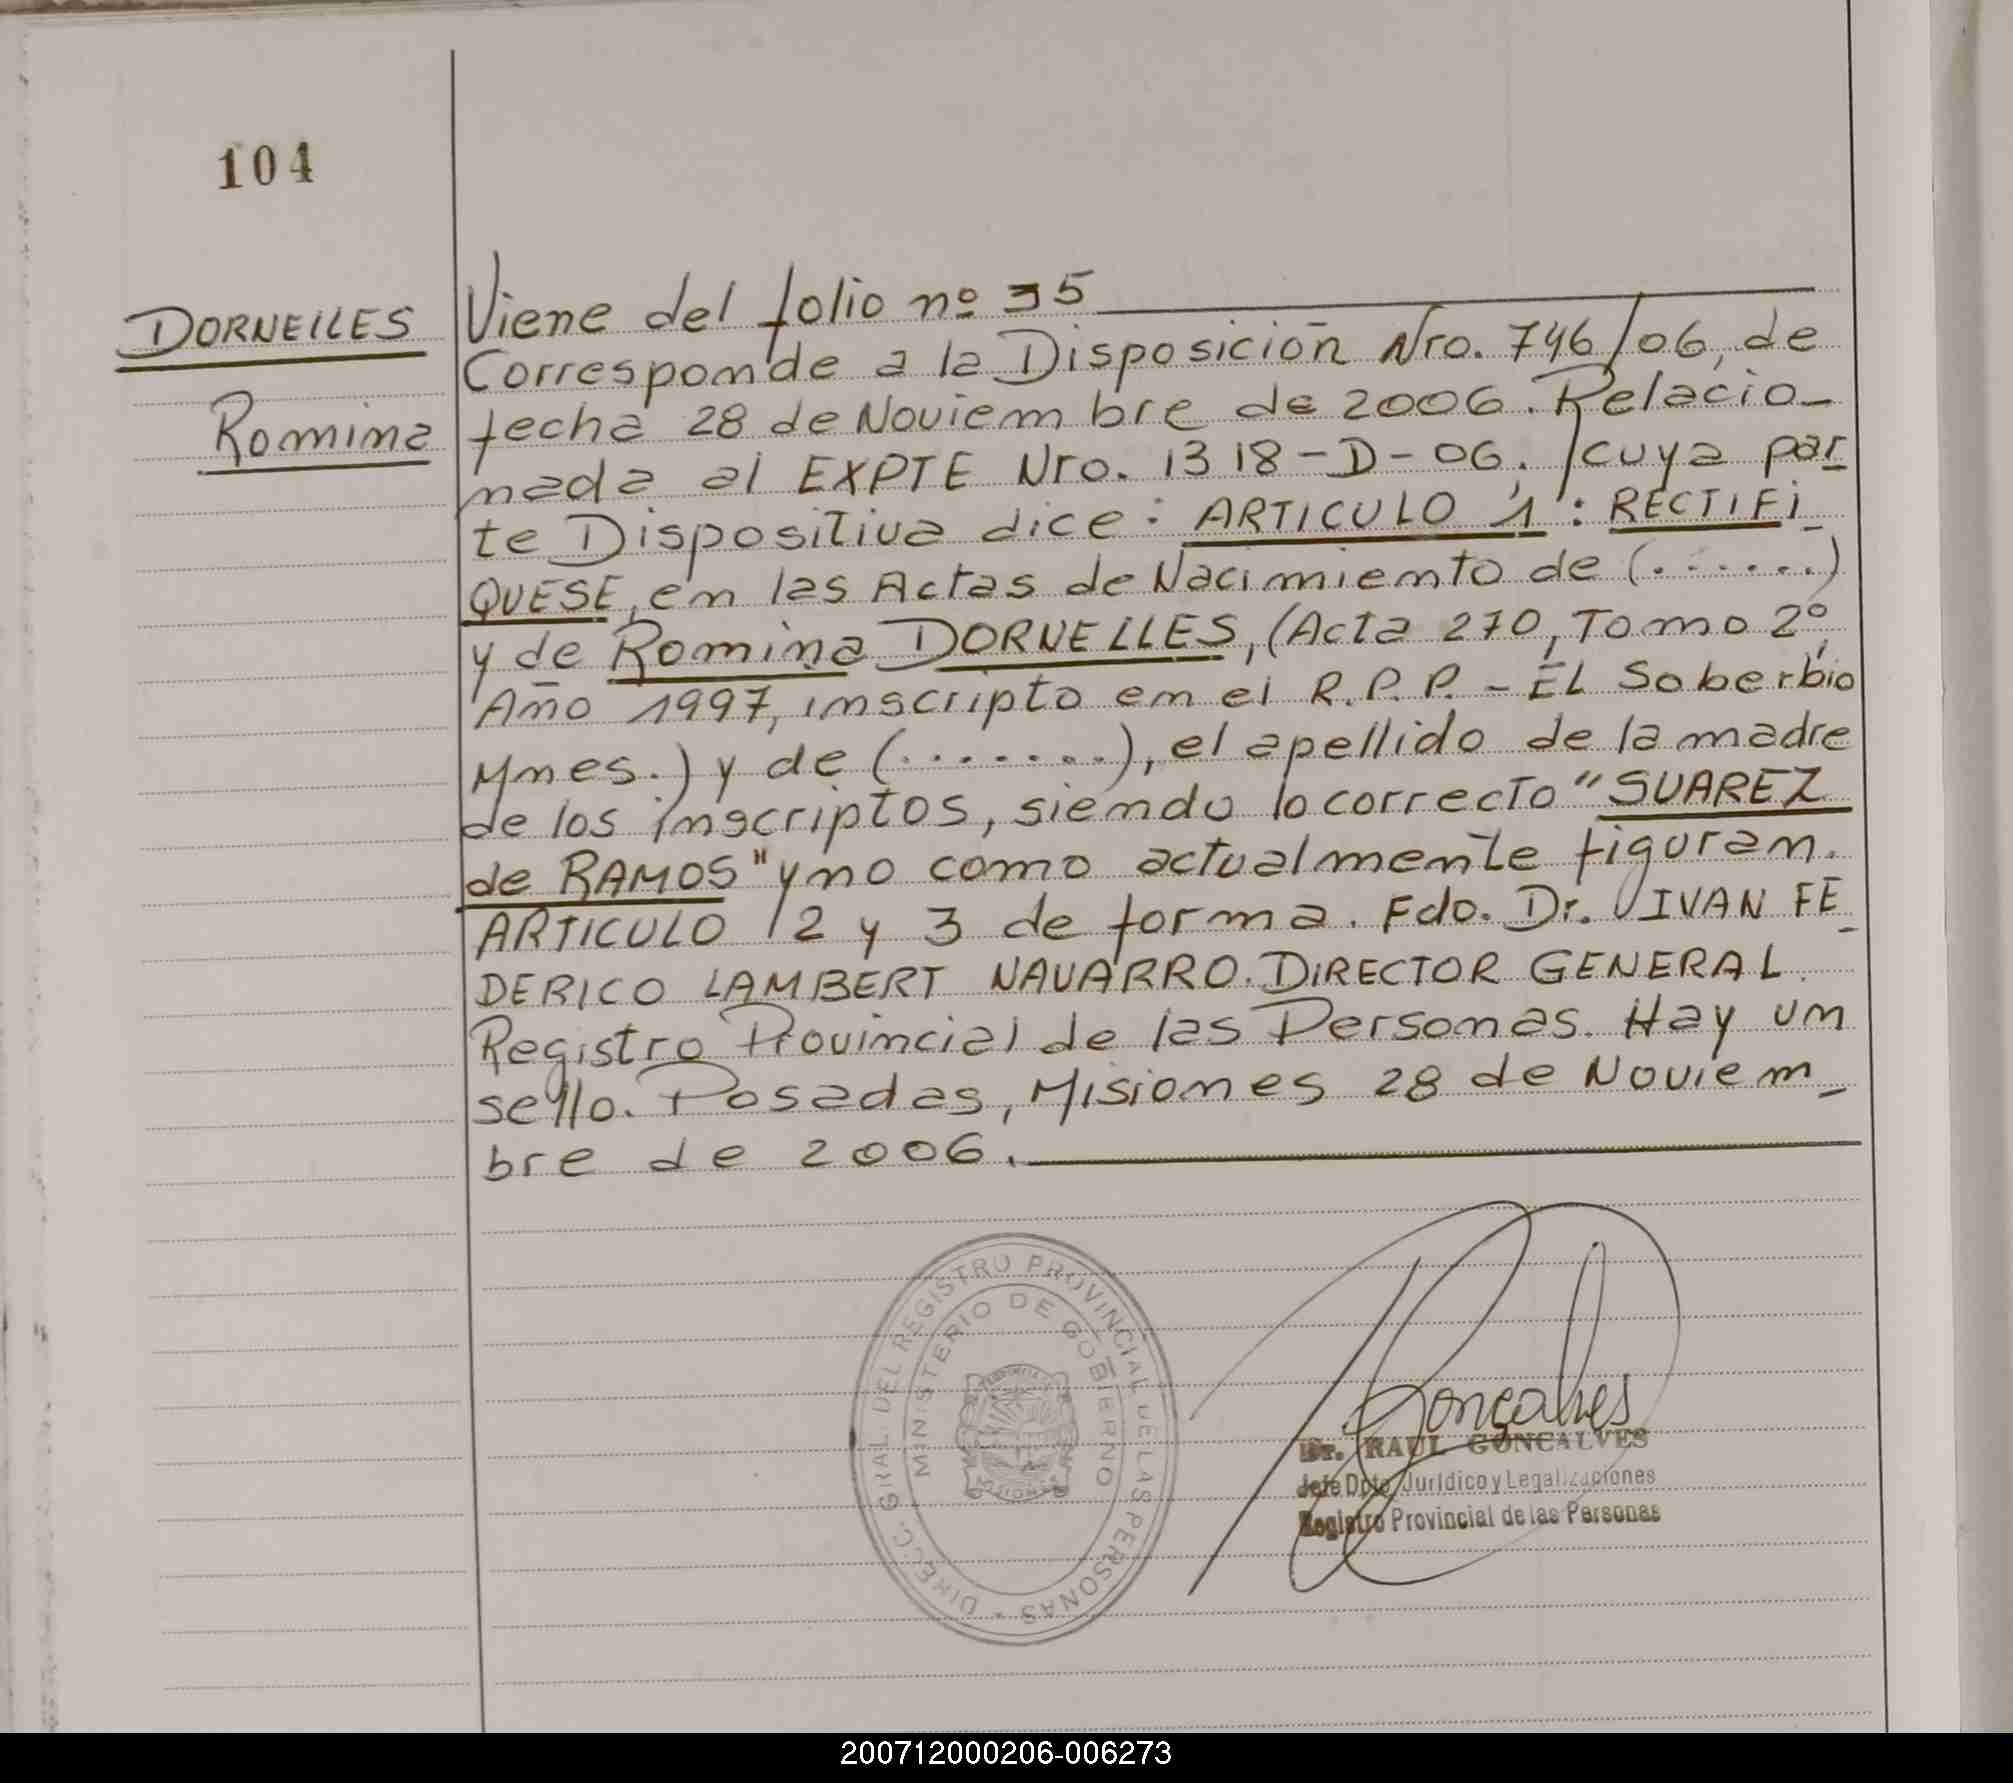 104
DORNELLES
Romina
Viene del folio nº 35
Corresponde a la Disposición Nro. 746/06, de
fecha 28 de Noviembre de 2006. Relacio-
nada al EXPTE Nro. 1318-D-06. cuya par-
te Dispositiva dice: ARTICULO 1: RECTIFI-
QUESE, en las Actas de Nacimiento de (......)
y de Romina DORNELLES, (Acta 270, Tomo 2º,
Año 1997, inscripto en el R.P.P. - EL Soberbio
Mnes.) y de (.......), el apellido de la madre
de los inscriptos, siendo lo correcto "SUAREZ
de RAMOS" y no como actualmente figuran.
ARTICULO 2 y 3 de forma. Fdo. Dr. IVAN FE-
DERICO LAMBERT NAVARRO. DIRECTOR GENERAL.
Registro Provincial de las Personas. Hay un
sello. Posadas, Misiones 28 de Noviem-
bre de 2006.
DIRECC. GRAL. DEL REGISTRO PROVINCIAL DE LAS PERSONAS
MINISTERIO DE GOBIERNO
MISIONES
Gonçalves
Dr. RAUL GONCALVES
Jefe Dpto. Jurídico y Legalizaciones
Registro Provincial de las Personas
200712000206-006273